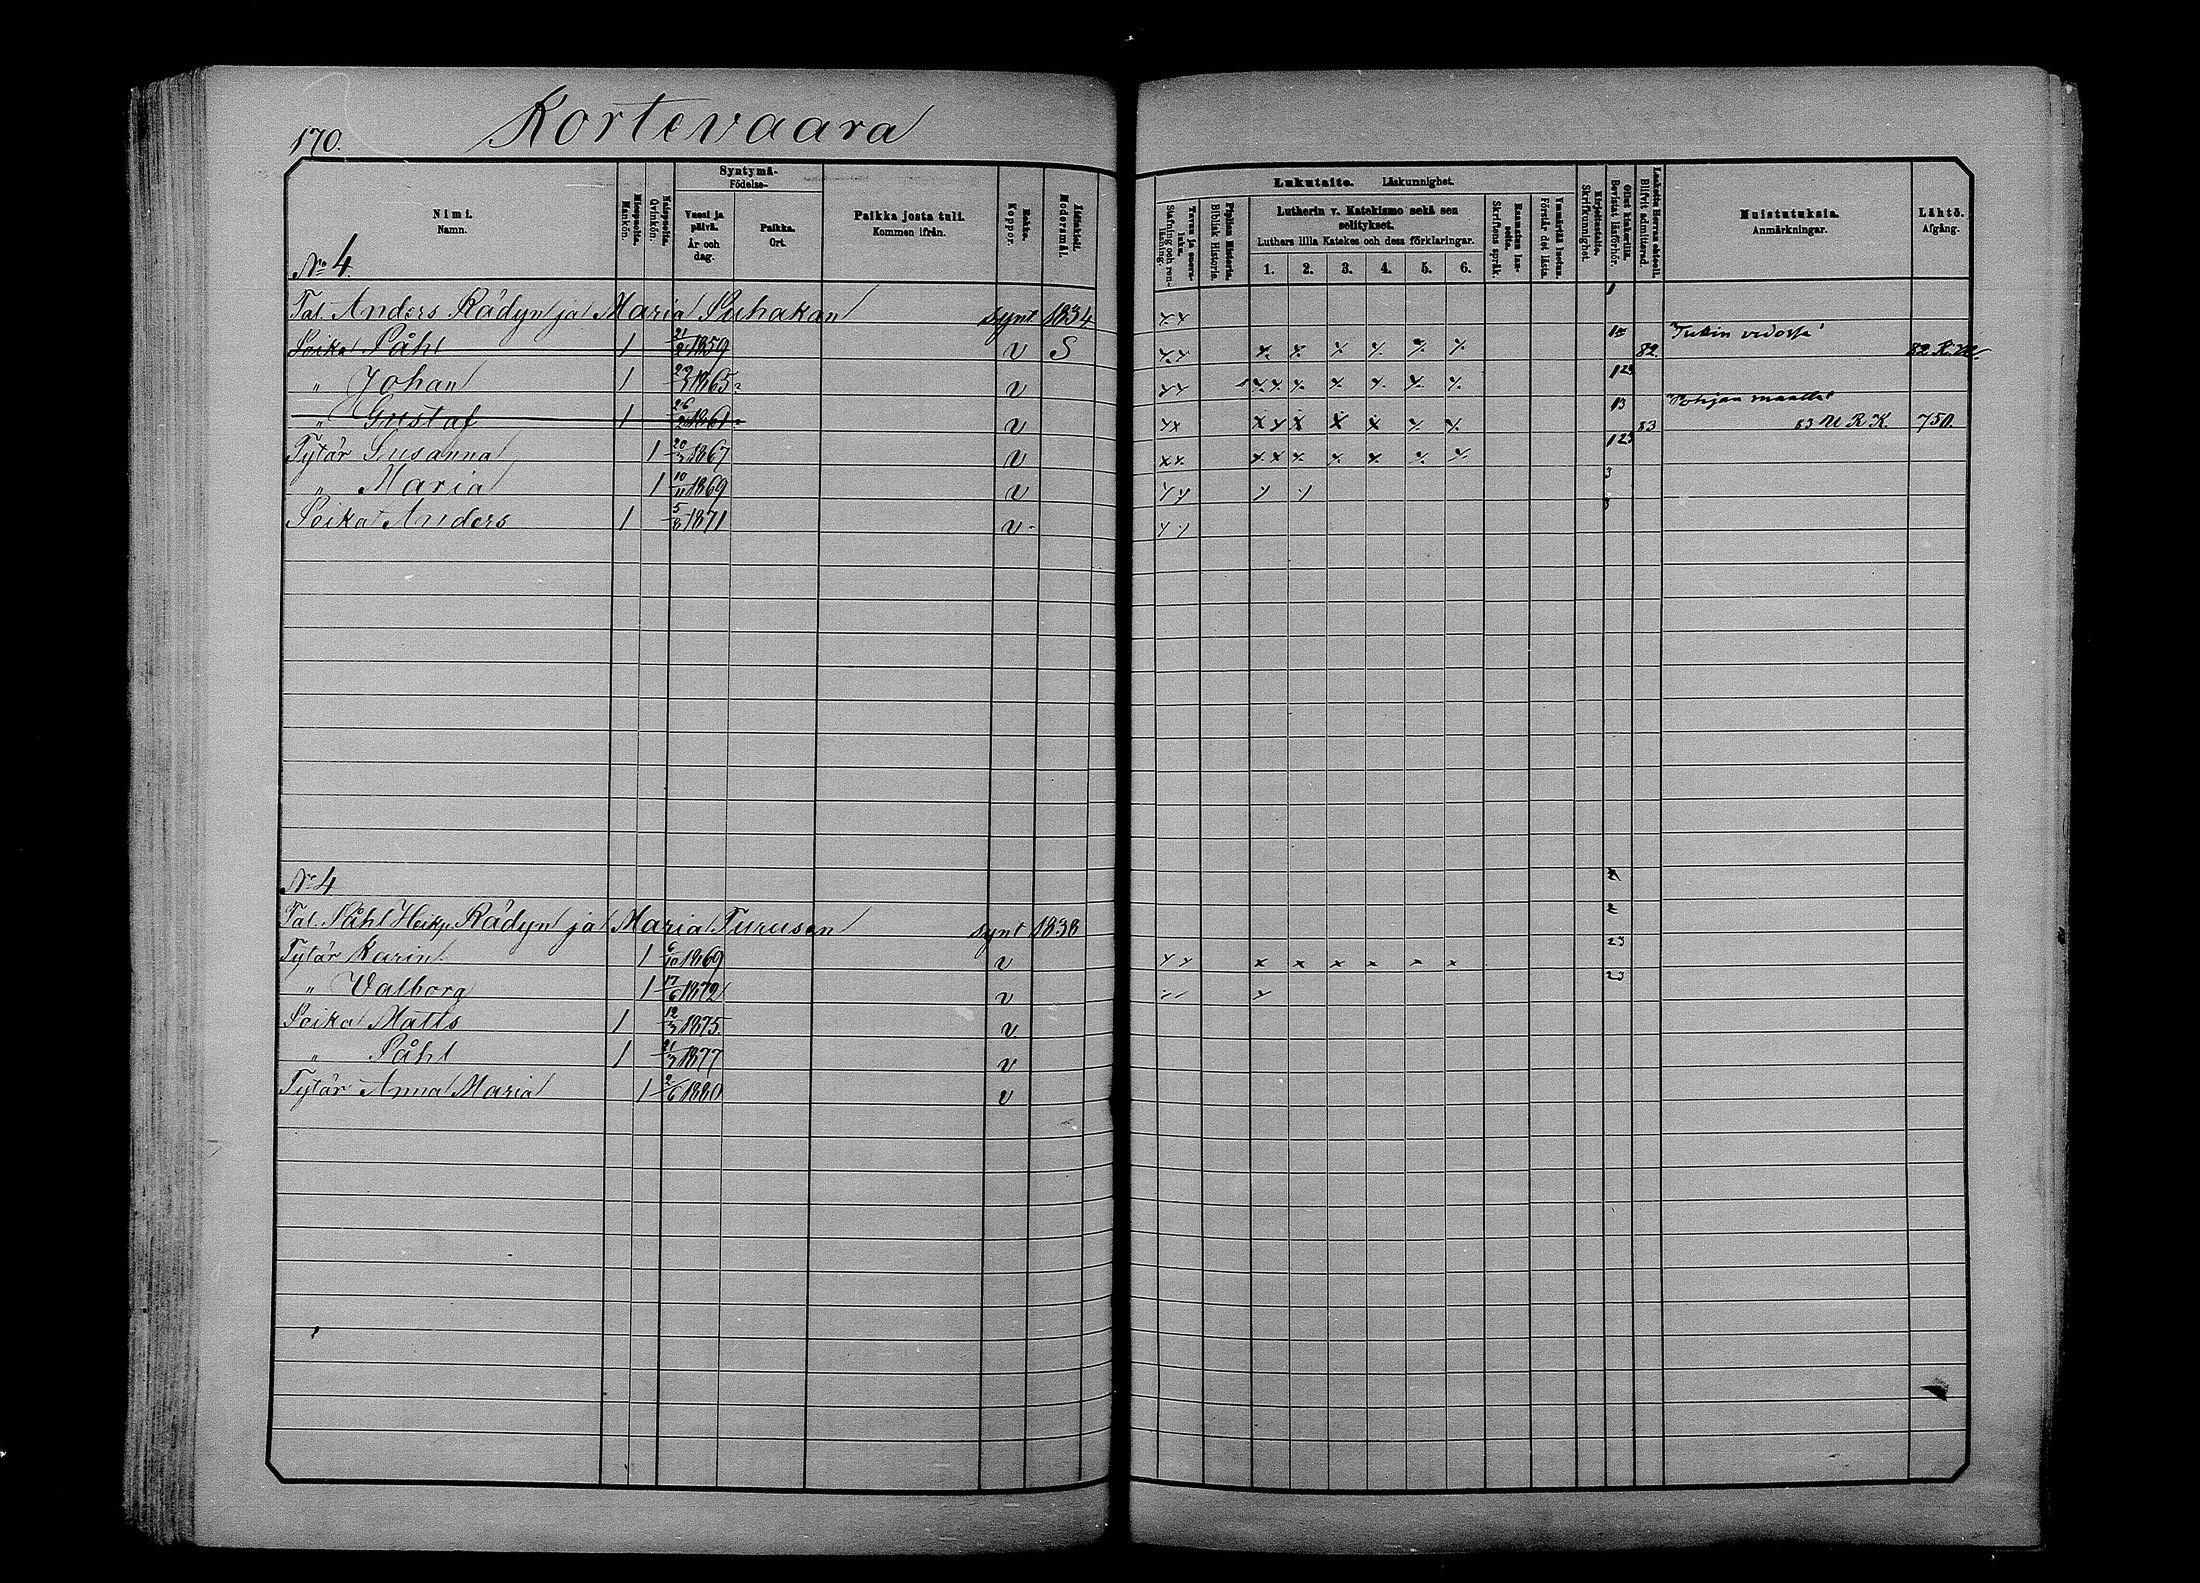 170. Kortevaara
Nimi. Namn.
Miespuolia. Mankön.
Naispuolia. Qvinkön.
Syntymä- Födelse-
Vuosi ja päivä. År och dag.
Paikka. Ort.
Paikka josta tuli. Kommen ifrån.
Rokko. Koppor.
Modersmål.
Lukutaito. Läskunnighet.
Tavuu ja suora- luku. Stafning och ren- läsning.
Piplian Historia. Biblisk Historia.
Lutherin v. Katekismo sekä sen selitykset.
Luthers lilla Katekes och dess förklaringar.
1. 2. 3. 4. 5. 6.
Raamatun lau- seita. Skriftens språk.
Ymmärtää luetun. Förstår det lästa.
Kirjoitustaito. Skrifkunnighet.
Ollut kinkerillä. Bevistat läsförhör.
Laskettu Herran ehtool. Blifvit admitterad.
Muistutuksia. Anmärkningar.
Lähtö. Afgång.
No 4
Tal. Anders Rädyn ja Maria Puhakan synt 1834 x x 1
Poika Påhl 1 21/2 1859 v S 82
" Johan 1 29/3 1865 v 123
" Gustaf 1 26/2 1861 v 13 "Pohjan maalla" 83 83 M R K. 750.
Tytär Susanna 1 20/3 1867 v 123
" Maria 1 10/11 1869 v 3
Poika Anders 1 5/8 1871 v 3
No 4 2
Tal. Påhl Heikp. Rädyn ja Maria Turusen synt 1838 2
Tytär Karin 1 6/10 1869 v x x x x x x 23
" Valborg 1 17/6 1872 v 23
Poika Matts 1 12/3 1875. v
" Påhl 1 21/3 1877 v
Tytär Anna Maria 1 2/6 1880 v